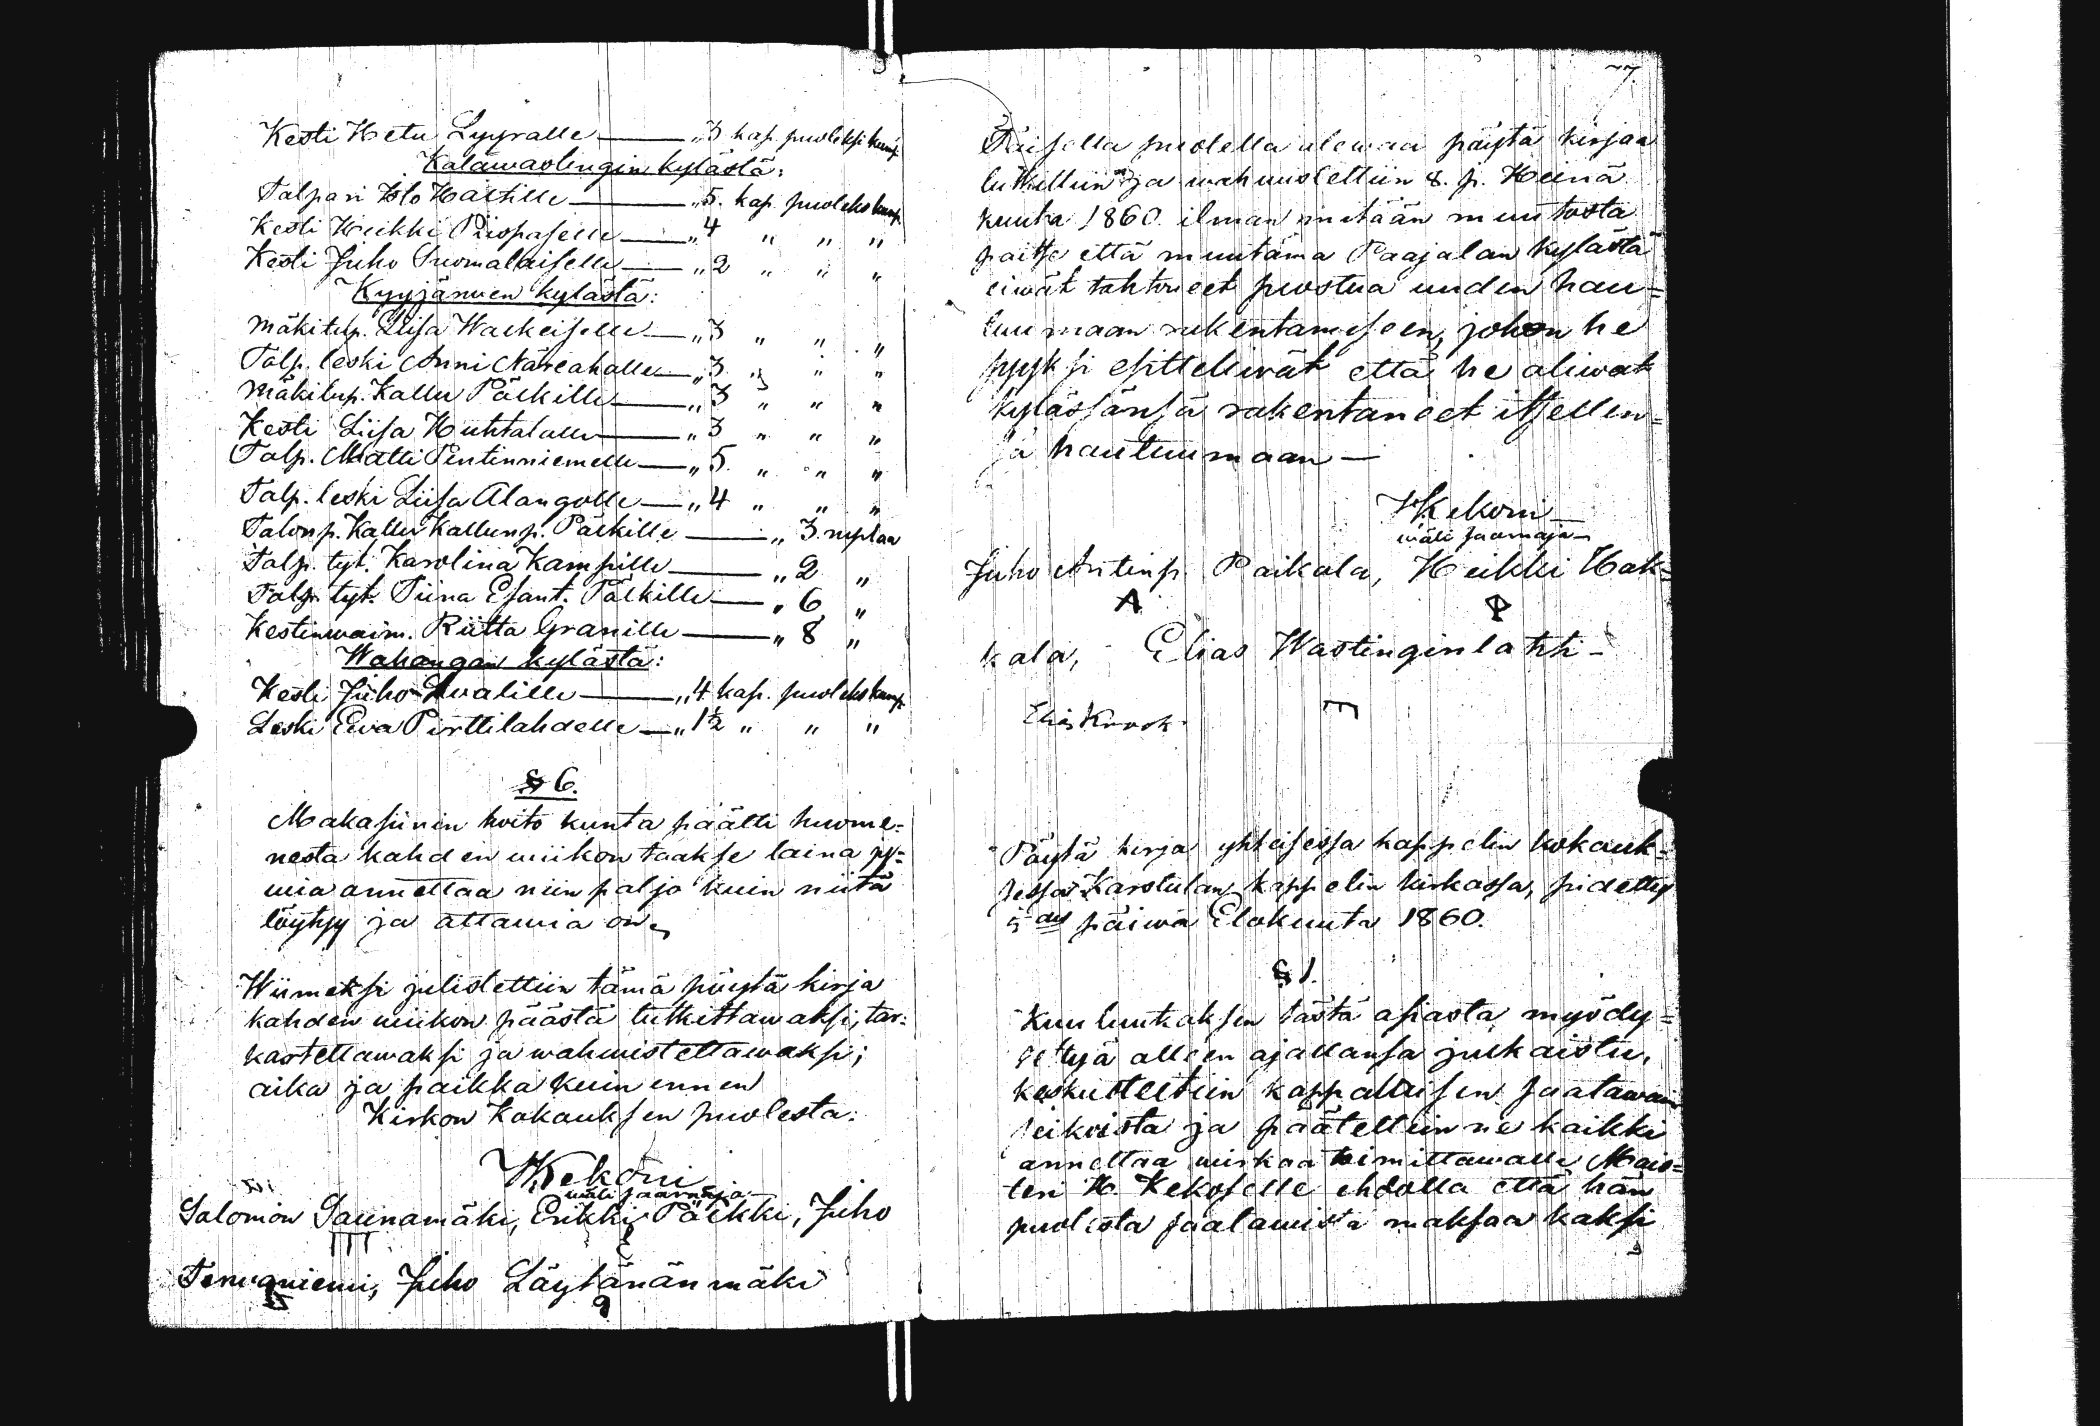 Kesti Hetu Lyyralle — „ 3 kap. puoleksi kump.
Kalawaolingin kylästä:
Talpari Isto Haitille — „ 5. kap. puoleks kump.
Kesti Heikki Piispaselle — „ 4 „ „ „
Kesti Juho Suomalaiselle — „ 2 „ „ „
Kyyjärwen kylästä:
Mäkitup. Liisa Waekeiselle — „ 3 „ „ „
Talp. leski Anni Näreaholle — „ 3 „ „ „
Mäkitup. Kallu Päikille — „ 3 „ „ „
Kesti Liisa Huhtalalle — „ 3 „ „ „
Talp. Matti Pentinniemelle — „ 5. „ „ „
Talp. leski Liisa Alangolle — „ 4 „ „ „
Talonp. Kallu Kallunp. Päikille — „ 3. ruplaa
Talp. tyt. Karolina Kampille — „ 2 „
Talp. tyt. Tiina Esant. Päikille — „ 6 „
Kestinwaim. Riitta Granille — „ 8 „
Wahangan kylästä:
Kesti Juho Lualille — „ 4 kap. puoleks kump.
Leski Ewa Pirttilahdelle — „ 1½ „ „ „
§ 6.
Makasiinin hoito kunta päätti huome=
nesta kahden wiikon taakse laina jy=
wiä annettaa niin paljo kuin niitä
löytyy ja attawia on.
Wiimeksi julistettiin tämä pöytä kirja
kahden wiikon päästä tutkittawaksi, tar=
kastettawaksi ja wahwistettawaksi;
aika ja paikka kuin ennen
Kirkon Kokouksen puolesta:
HKekoni
wäli saarnaja
Salomon Saunamäki, Erikki Päikki, Juho
III
Terwaniemi, Juho Läytänänmäki
77.
Toisella puolella olewaa pöytä kirjaa
lutkittiin ja wahwistettiin 8. p. Heinä
kuuta 1860. ilman mitään muutosta
paitse että muutama Paajalan kylästä
eiwät tahtoneet suostua uuden hau=
tuumaan rakentamiseen, johon he
syyksi esittelivät että he oliwat
kylässänsä rakentaneet itsellen=
sä hautuumaan —
HKekoni
wäli saarnaja
Juho Antinp. Paikala, Heikki Hok=
A
kala, Elias Wastinginlahti
E
Elias Krook
Pöytä kirja yhteisessa kappelin kokouk=
sessa Karstulan kappelin kirkossa, pidetty
5 des päiwä Elokuuta 1860.
§ 1.
Kuulutuksen tästä asiasta myödy=
tettyä alleen ajallansa julkaistu,
keskusteltiin kappallaisen saatawain
seikoista ja päätettiin ne kaikki
annettaa wirkaa toimittawalle Mais=
teri H. Kekoselle ehdolla että hän
puolesta saatawista maksaa kaksi